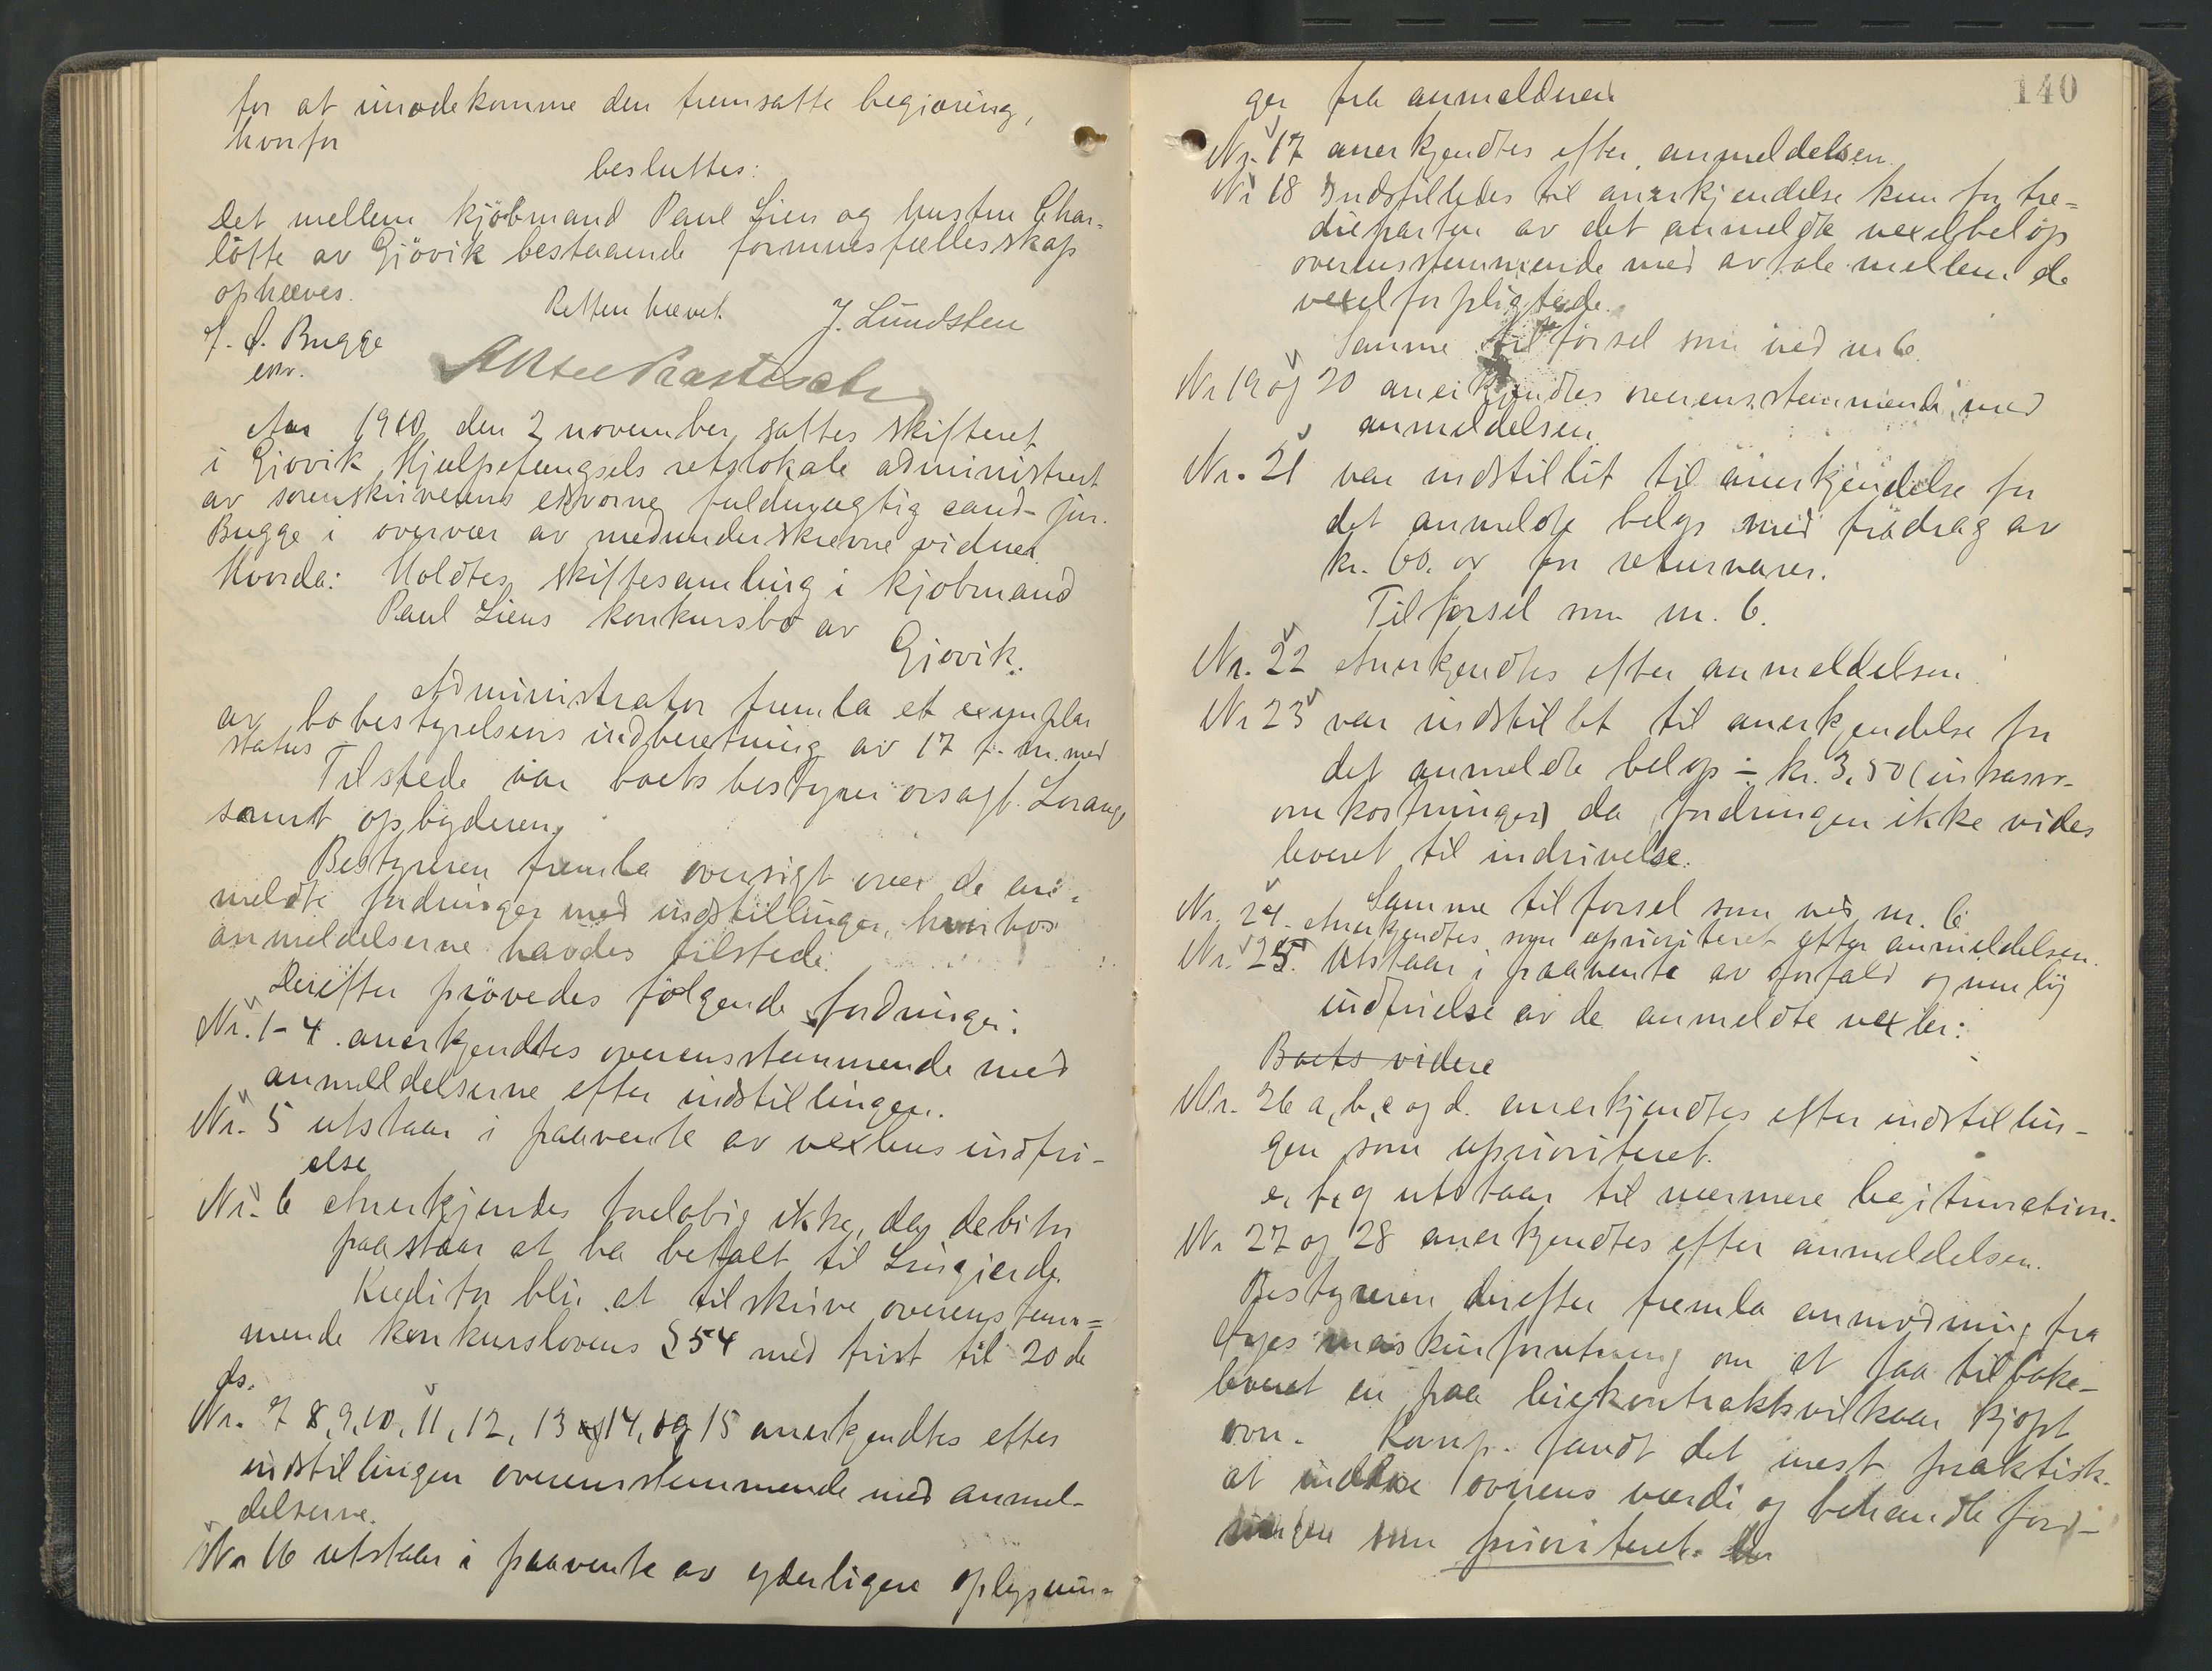 for at imødekomme den fremsatte begjæring,
hvorfor
besluttes:
Det mellem kjöbmand Paul Lien og hustru Char-
lotte av Gjövik bestaaende formuesfællesskap
ophæves.
Retten hævet.
J. Lundsten
Bugge
Aar 1910 den 2 november sattes skifteret
i Gjøvik Hjælpefængsels retslokale administrert
av sorenskriverens edsvorne fuldmægtig cand. jur.
Bugge i overvær av medunderskrevne vidner.
Hvorda: Holdtes skiftesamling i kjøbmand
Paul Liens konkursbo av
Gjøvik.
Administrator fremla et exemplar
av bobestyrelsens indberetning av 17 f. m. med
status
Tilstede var boets bestyrer orsagf. Lorang
samt opbyderen.
Bestyreren fremla oversigt over de an-
meldte fordringer med indstillinger, hvorhos
anmeldelserne havdes tilstede.
Derefter prövedes fölgende fordringer:
Nr. 1-4. anerkjendtes overensstemmende med
anmeldelserne efter indstillingen.
Nr. 5 utstaar i paavente av vexlens indfri-
else
Nr. 6 Anerkjendes foreløbig ikke, da debitor
paastaar at ha betalt til Lingjerde.
Kreditor blir at tilskrive overenstem=
mende konkurslovens § 54 med frist til 20 de
ds.
Nr. 7 8, 9, 10, 11, 12, 13 og 14, og 15 anerkjendtes efter
indstillingen overensstemmende med anmel-
delserne.
Nr 16 utstaar i paavente av yderligere oplysnin-
140
ger fra anmelderen
Nr. 17 anerkjendtes efter anmeldelsen.
Nr 18 Indstilledes til anerkjendelse kun for tre=
dieparten av det anmeldte vexelbeløp
overensstemmende med avtale mellem de
vexelforpligtede.
Samme tilførsel som ved nr 6.
Nr 19 og 20 anerkjendtes overensstemmende med
anmeldelsen.
Nr. 21 var indstillet til anerkjendelse for
det anmeldte beløp med fradrag av
kr. 60. for returvarer.
Tilførsel som nr. 6.
Nr. 22 Anerkjendtes efter anmeldelsen.
Nr 23 var indstillet til anerkjendelse for
det anmeldte beløp ÷ kr. 3,50 (inkasso-
omkostninger) da fordringen ikke vides
leveret til indrivelse.
Samme tilførsel som ved nr. 6
Nr. 24. Anerkjendtes som uprioriteret efter anmeldelsen.
Nr. 25. Utstaar i paavente av forfald og mulig
indfrielse av de anmeldte vexler:
Boets videre
Nr. 26 a, b, c og d. anerkjendtes efter indstillin-
gen som uprioriteret.
e, f, g utstaar til nærmere legitimation.
Nr 27 og 28 anerkjendtes efter anmeldelsen.
Bestyreren derefter fremla anmodning fra
maskinforretning om at faa tilbake-
leveret en paa leiekontraktsvilkaar kjøpt
ovn. Komp. fandt det mest praktisk
at ovnens værdi og behandle ford-
ringen som prioriteret.